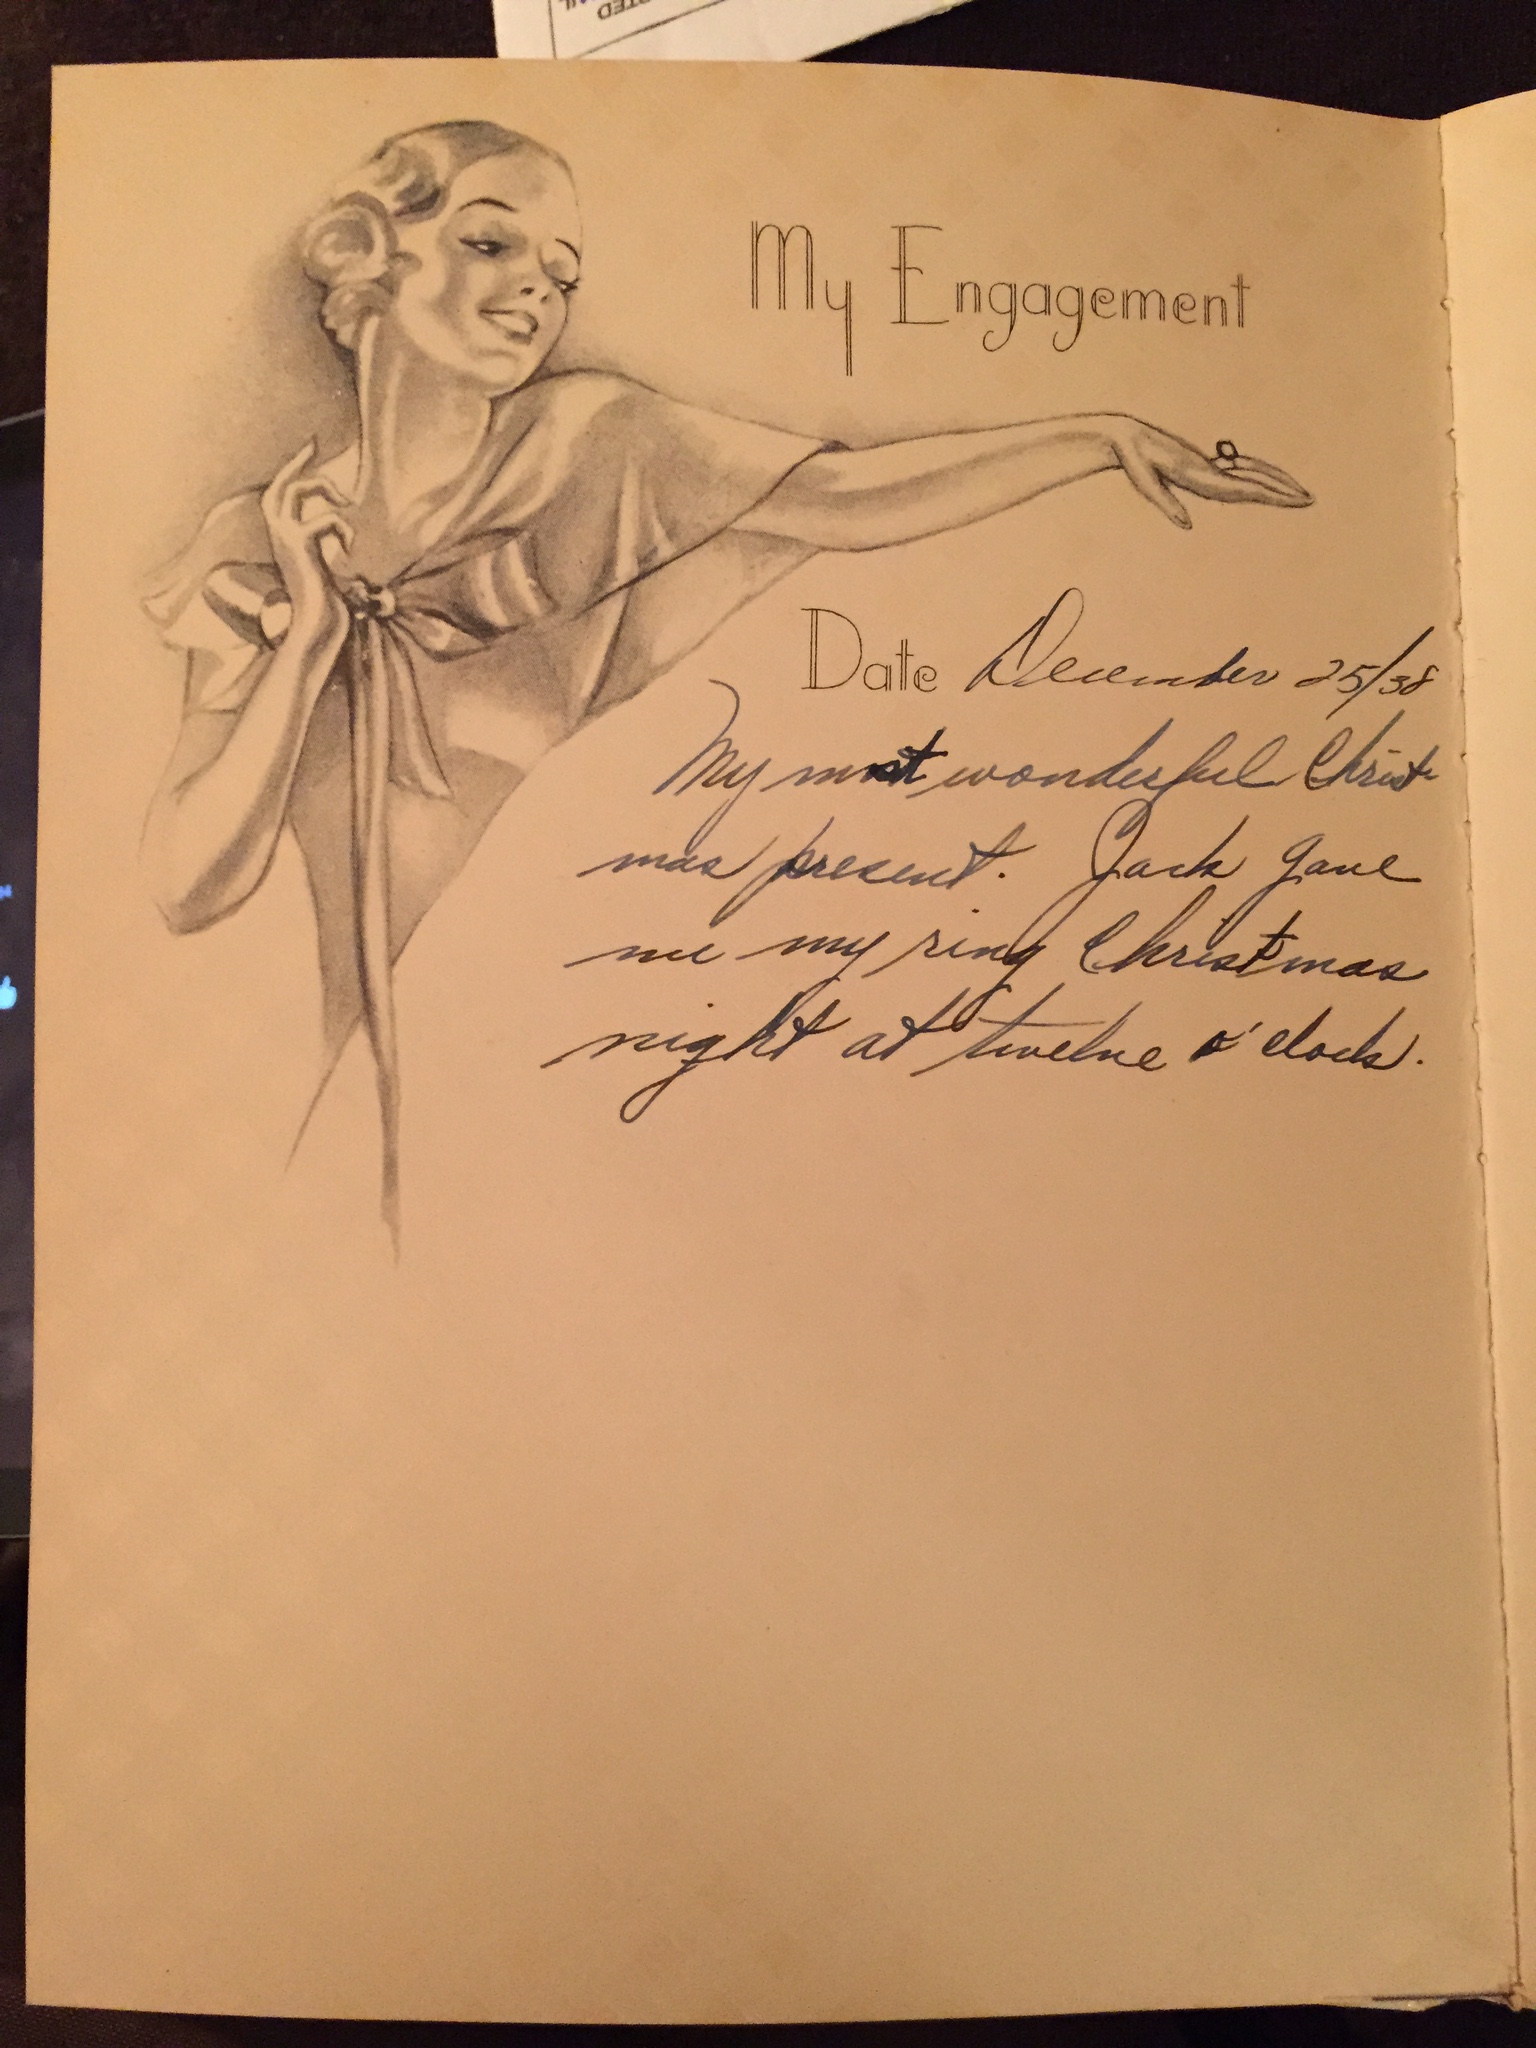 My Engagement
Date December 25/38
My most wonderful Christ-
mas present. Jack gave
me my ring Christmas
night at twelve o'clock.